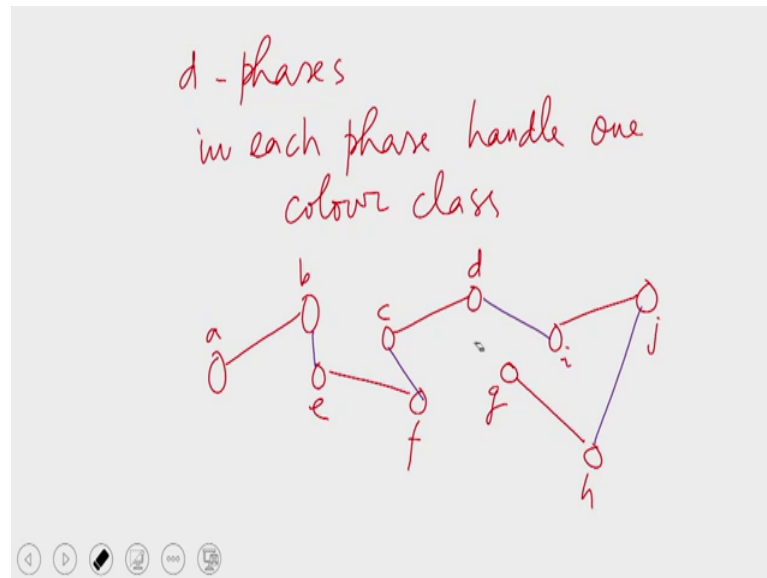 d-phases
in each phase handle one
colour class
b
d
a
c
j
i
e
g
f
h